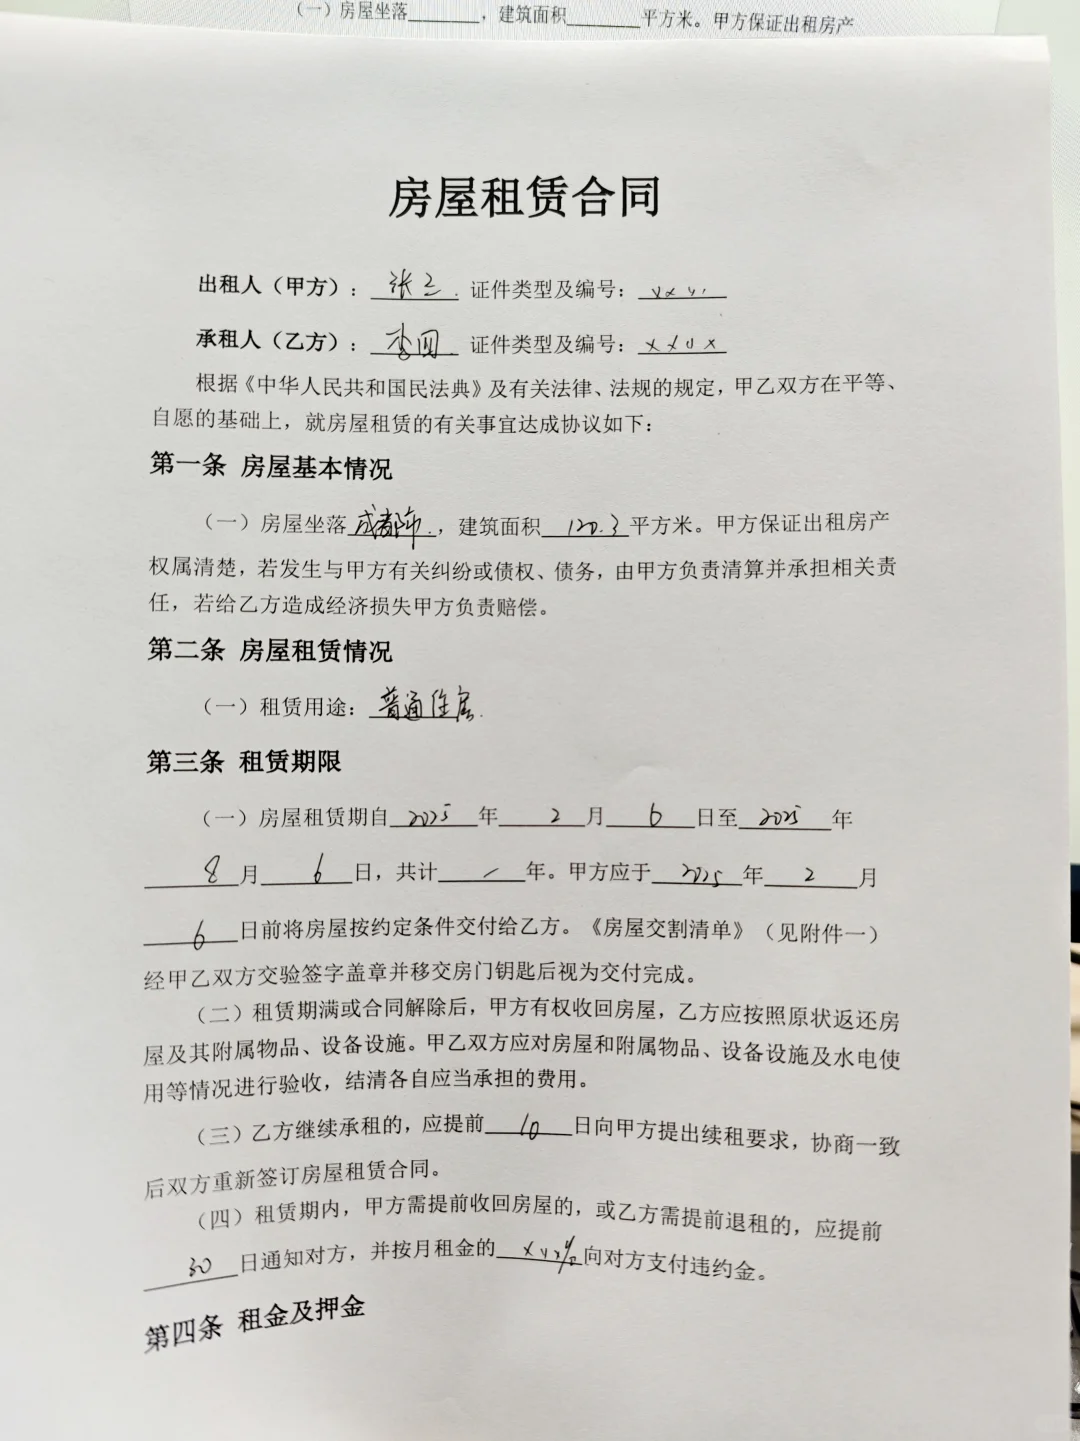 （一）房屋坐落________，建筑面积________平方米。甲方保证出租房产
房屋租赁合同
出租人（甲方）：张三. 证件类型及编号：
承租人（乙方）：李四. 证件类型及编号：
根据《中华人民共和国民法典》及有关法律、法规的规定，甲乙双方在平等、
自愿的基础上，就房屋租赁的有关事宜达成协议如下：
第一条 房屋基本情况
（一）房屋坐落成都市.，建筑面积120.3平方米。甲方保证出租房产
权属清楚，若发生与甲方有关纠纷或债权、债务，由甲方负责清算并承担相关责
任，若给乙方造成经济损失甲方负责赔偿。
第二条 房屋租赁情况
（一）租赁用途：普通住房.
第三条 租赁期限
（一）房屋租赁期自2025年2月6日至2025年
8月6日，共计一年。甲方应于2025年2月
6日前将房屋按约定条件交付给乙方。《房屋交割清单》（见附件一）
经甲乙双方交验签字盖章并移交房门钥匙后视为交付完成。
（二）租赁期满或合同解除后，甲方有权收回房屋，乙方应按照原状返还房
屋及其附属物品、设备设施。甲乙双方应对房屋和附属物品、设备设施及水电使
用等情况进行验收，结清各自应当承担的费用。
（三）乙方继续承租的，应提前10日向甲方提出续租要求，协商一致
后双方重新签订房屋租赁合同。
（四）租赁期内，甲方需提前收回房屋的，或乙方需提前退租的，应提前
30日通知对方，并按月租金的 向对方支付违约金。
第四条 租金及押金